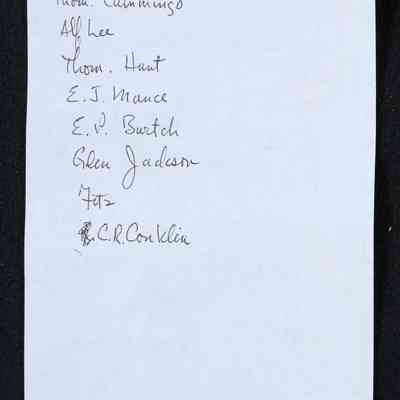 Thom. Cummings
Alf Lee
Thom. Hunt
E. J. Mance
E. P. Burtch
Glen Jackson
Fitz
C.R. Conklin